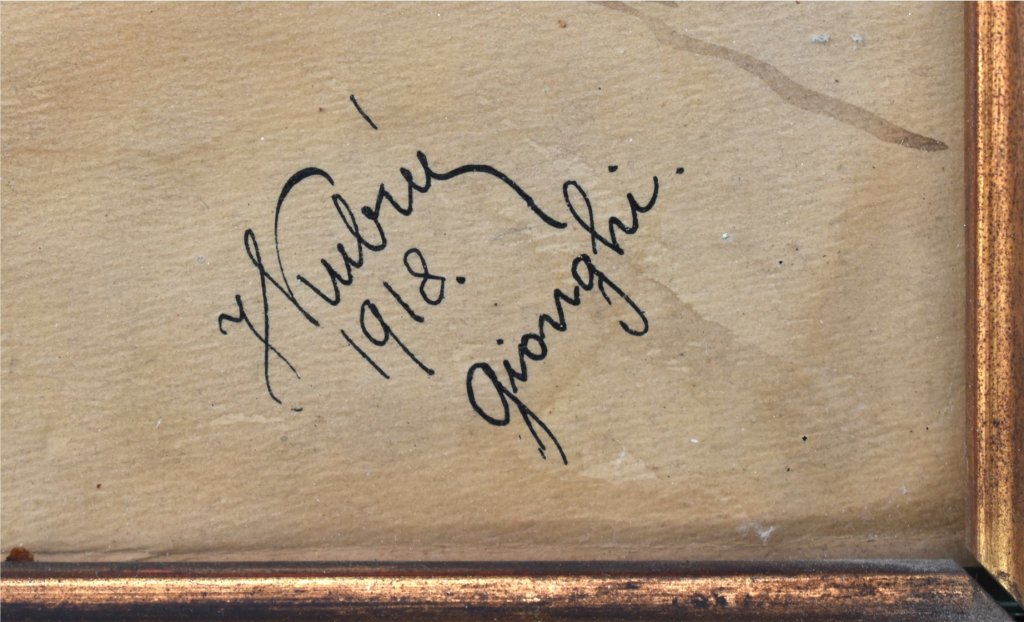 Kubní
1918.
gionghi.